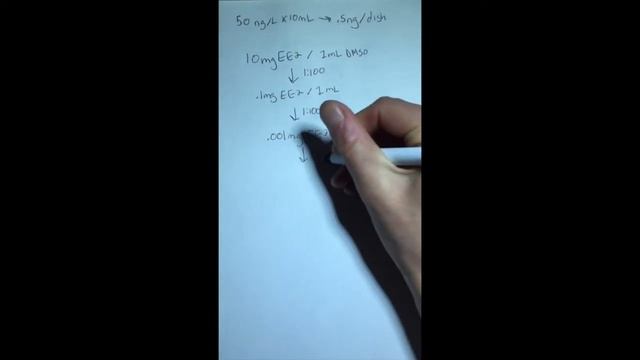 50 ng/L x 10mL → .5ng/dish
10mg EE2 / 1mL DMSO
↓ 1:100
.1mg EE2 / 1mL
↓ 1:100
.001mg EE2
↓